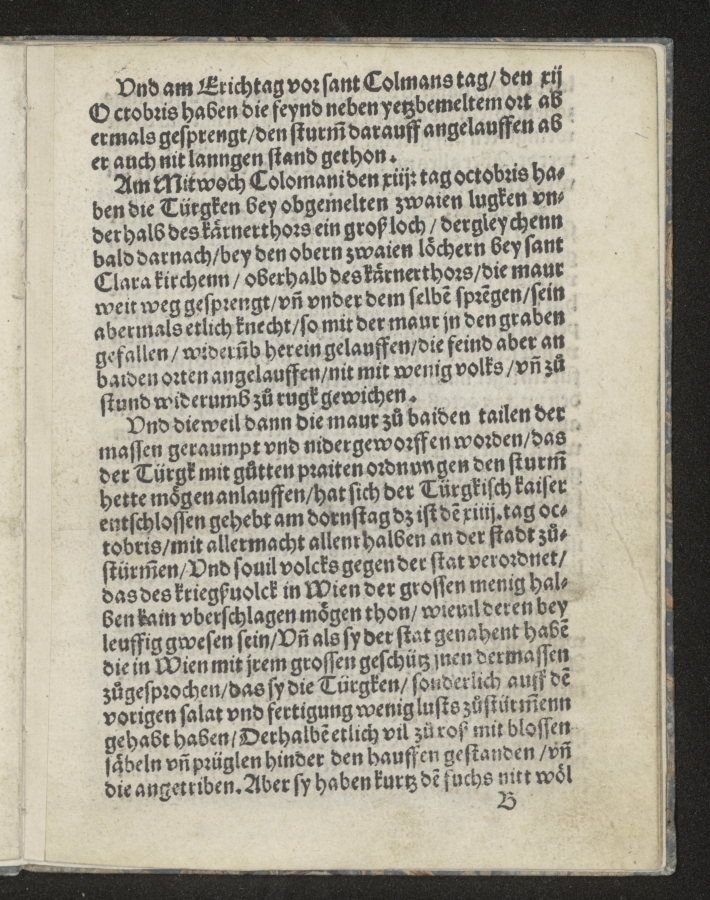 Vnd am Erichtag vor sant Colmans tag/ den xij
Octobris haben die feynd neben yetzbemeltem ort ab
ermals gesprengt/den sturm̄ darauff angelauffen ab
er auch nit lanngen stand gethon.
Am Mitwoch Colomani den xiij: tag octobris ha⸗
ben die Türgken bey obgemelten zwaien lugken vn⸗
derhalb des kärnerthors ein groß loch / dergleychenn
bald darnach/bey den obern zwaien löchern bey sant
Clara kirchenn / oberhalb des kärnerthors/die maur
weit weg gesprengt/vn̄ vnder dem selbē sprēgen/sein
abermals etlich knecht/so mit der maur jn den graben
gefallen / widerūb herein gelauffen/die feind aber an
baiden orten angelauffen/nit mit wenig volks /vn̄ zů
stund widerumb zů rugk gewichen.
Vnd dieweil dann die maur zů baiden tailen der
massen geraumpt vnd nidergeworffen worden/das
der Türgk mit gůtten praiten ordnungen den sturm̄
hette mögen anlauffen/hat sich der Türgkisch kaiser
entschlossen gehebt am dornstag dz ist dē xiiij. tag oc⸗
tobris/mit aller macht allent halben an der stadt zů⸗
stürm̄en/Vnd souil volcks gegen der stat verordnet/
das des kriegßuolck in Wien der grossen menig hal⸗
ben kain vberschlagen mögen thon/ wieuil deren bey
leuffig gwesen sein/Vn̄ als sy der stat genahent habē
die in Wien mit jrem grossen geschütz jnen dermassen
zůgesprochen/das sy die Türgken/ sonderlich auff dē
vorigen salat vnd fertigung wenig lusts zůstürm̄enn
gehabt haben/Derhalbē etlich vil zů roß mit blossen
säbeln vn̄ prüglen hinder den hauffen gestanden /vn̄
die angetriben. Aber sy haben kurtz dē fuchs nitt wöl
B